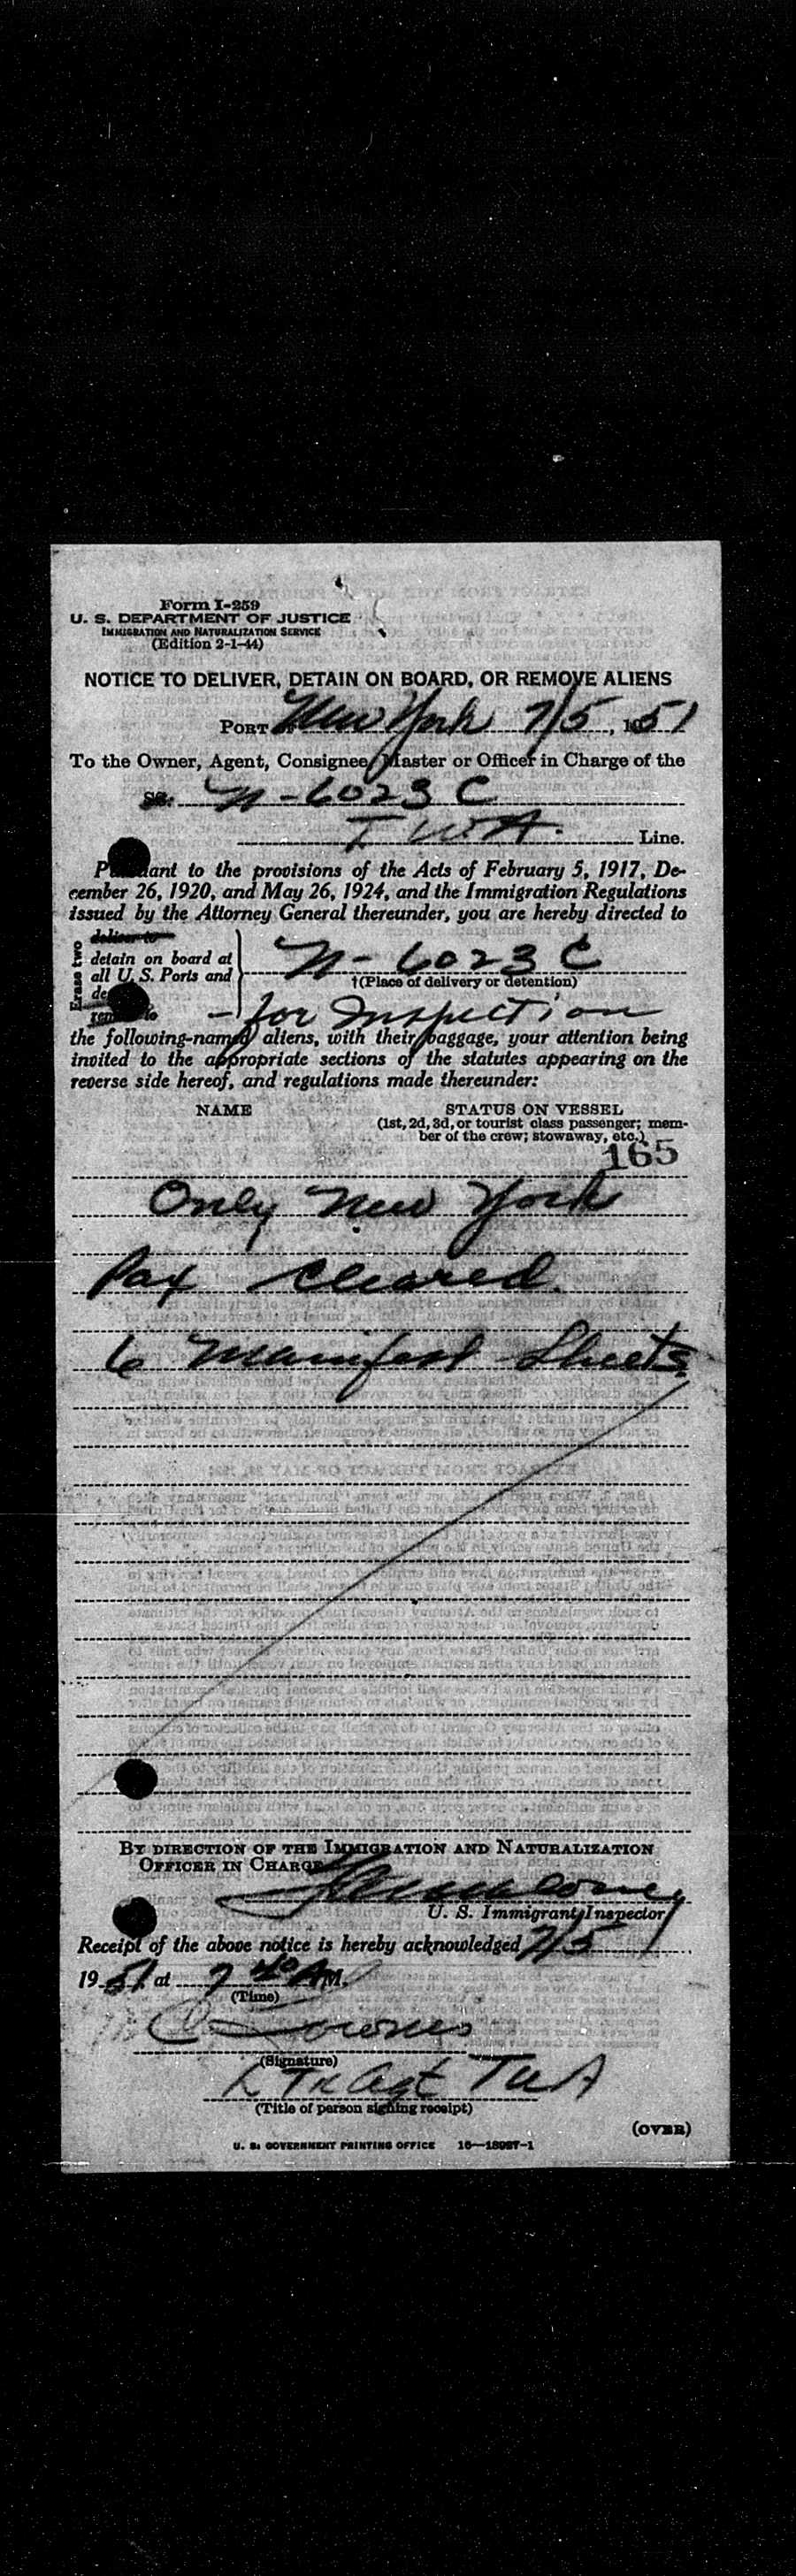 Form I-259
U. S. DEPARTMENT OF JUSTICE
IMMIGRATION AND NATURALIZATION SERVICE
(Edition 2-1-44)
NOTICE TO DELIVER, DETAIN ON BOARD, OR REMOVE ALIENS
PORT New York 7/5, 1951
To the Owner, Agent, Consignee, Master or Officer in Charge of the
SS. N-6023 C
TWA. Line.
Pursuant to the provisions of the Acts of February 5, 1917, De-
cember 26, 1920, and May 26, 1924, and the Immigration Regulations
issued by the Attorney General thereunder, you are hereby directed to
Erase two
deliver to
detain on board at
all U. S. Ports and
N-6023 C
†(Place of delivery or detention)
- for Inspection
the following-named aliens, with their baggage, your attention being
invited to the appropriate sections of the statutes appearing on the
reverse side hereof, and regulations made thereunder:
NAME
STATUS ON VESSEL
(1st, 2d, 3d, or tourist class passenger; mem-
ber of the crew; stowaway, etc.)
165
Only New York
Pax cleared.
6 Manifest Sheets
BY DIRECTION OF THE IMMIGRATION AND NATURALIZATION
OFFICER IN CHARGE
U. S. Immigrant Inspector
Receipt of the above notice is hereby acknowledged 7/5
1951 at 7 40 AM.
(Time)
(Signature)
Tr Agt TWA
(Title of person signing receipt)
(OVER)
U. S. GOVERNMENT PRINTING OFFICE